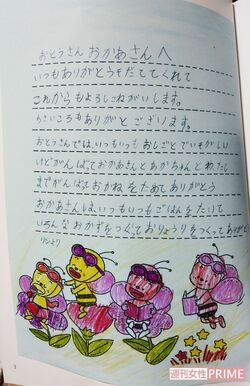 おとうさん おかあさんへ
いつもありがとうそだててくれて
これからもよろしこねがいします。
ちさいころもありがとございます。
おとうさんではいつもいつもおしごとでいそがしい
けどがんばておかあさんとあかちゃんとわたし
までがんばておかねをためてありがとう
おかあさんはいつもいつもごはんをたいて
いろんなおかずをつくておりょうりをつくってありがと
リンより
3
週刊女性PRIME